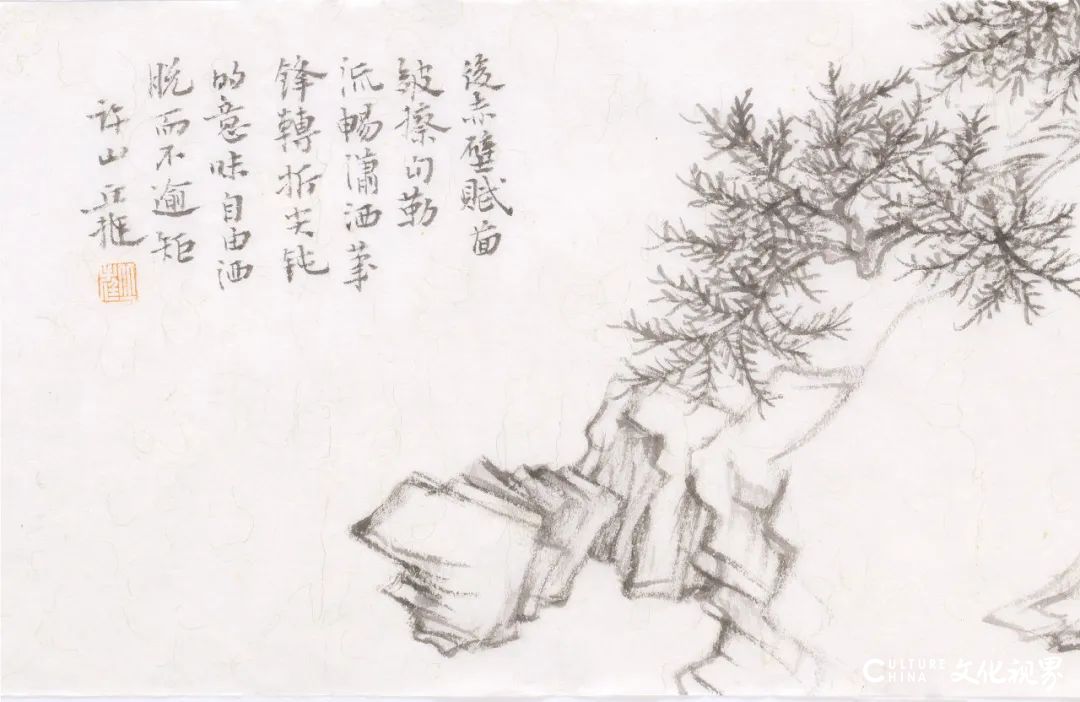 後赤壁賦畫
皴擦勾勒
流暢瀟洒筆
鋒轉折尖钝
的意味自由洒
脫而不逾矩
許山
CULTURE CHINA 文化视界